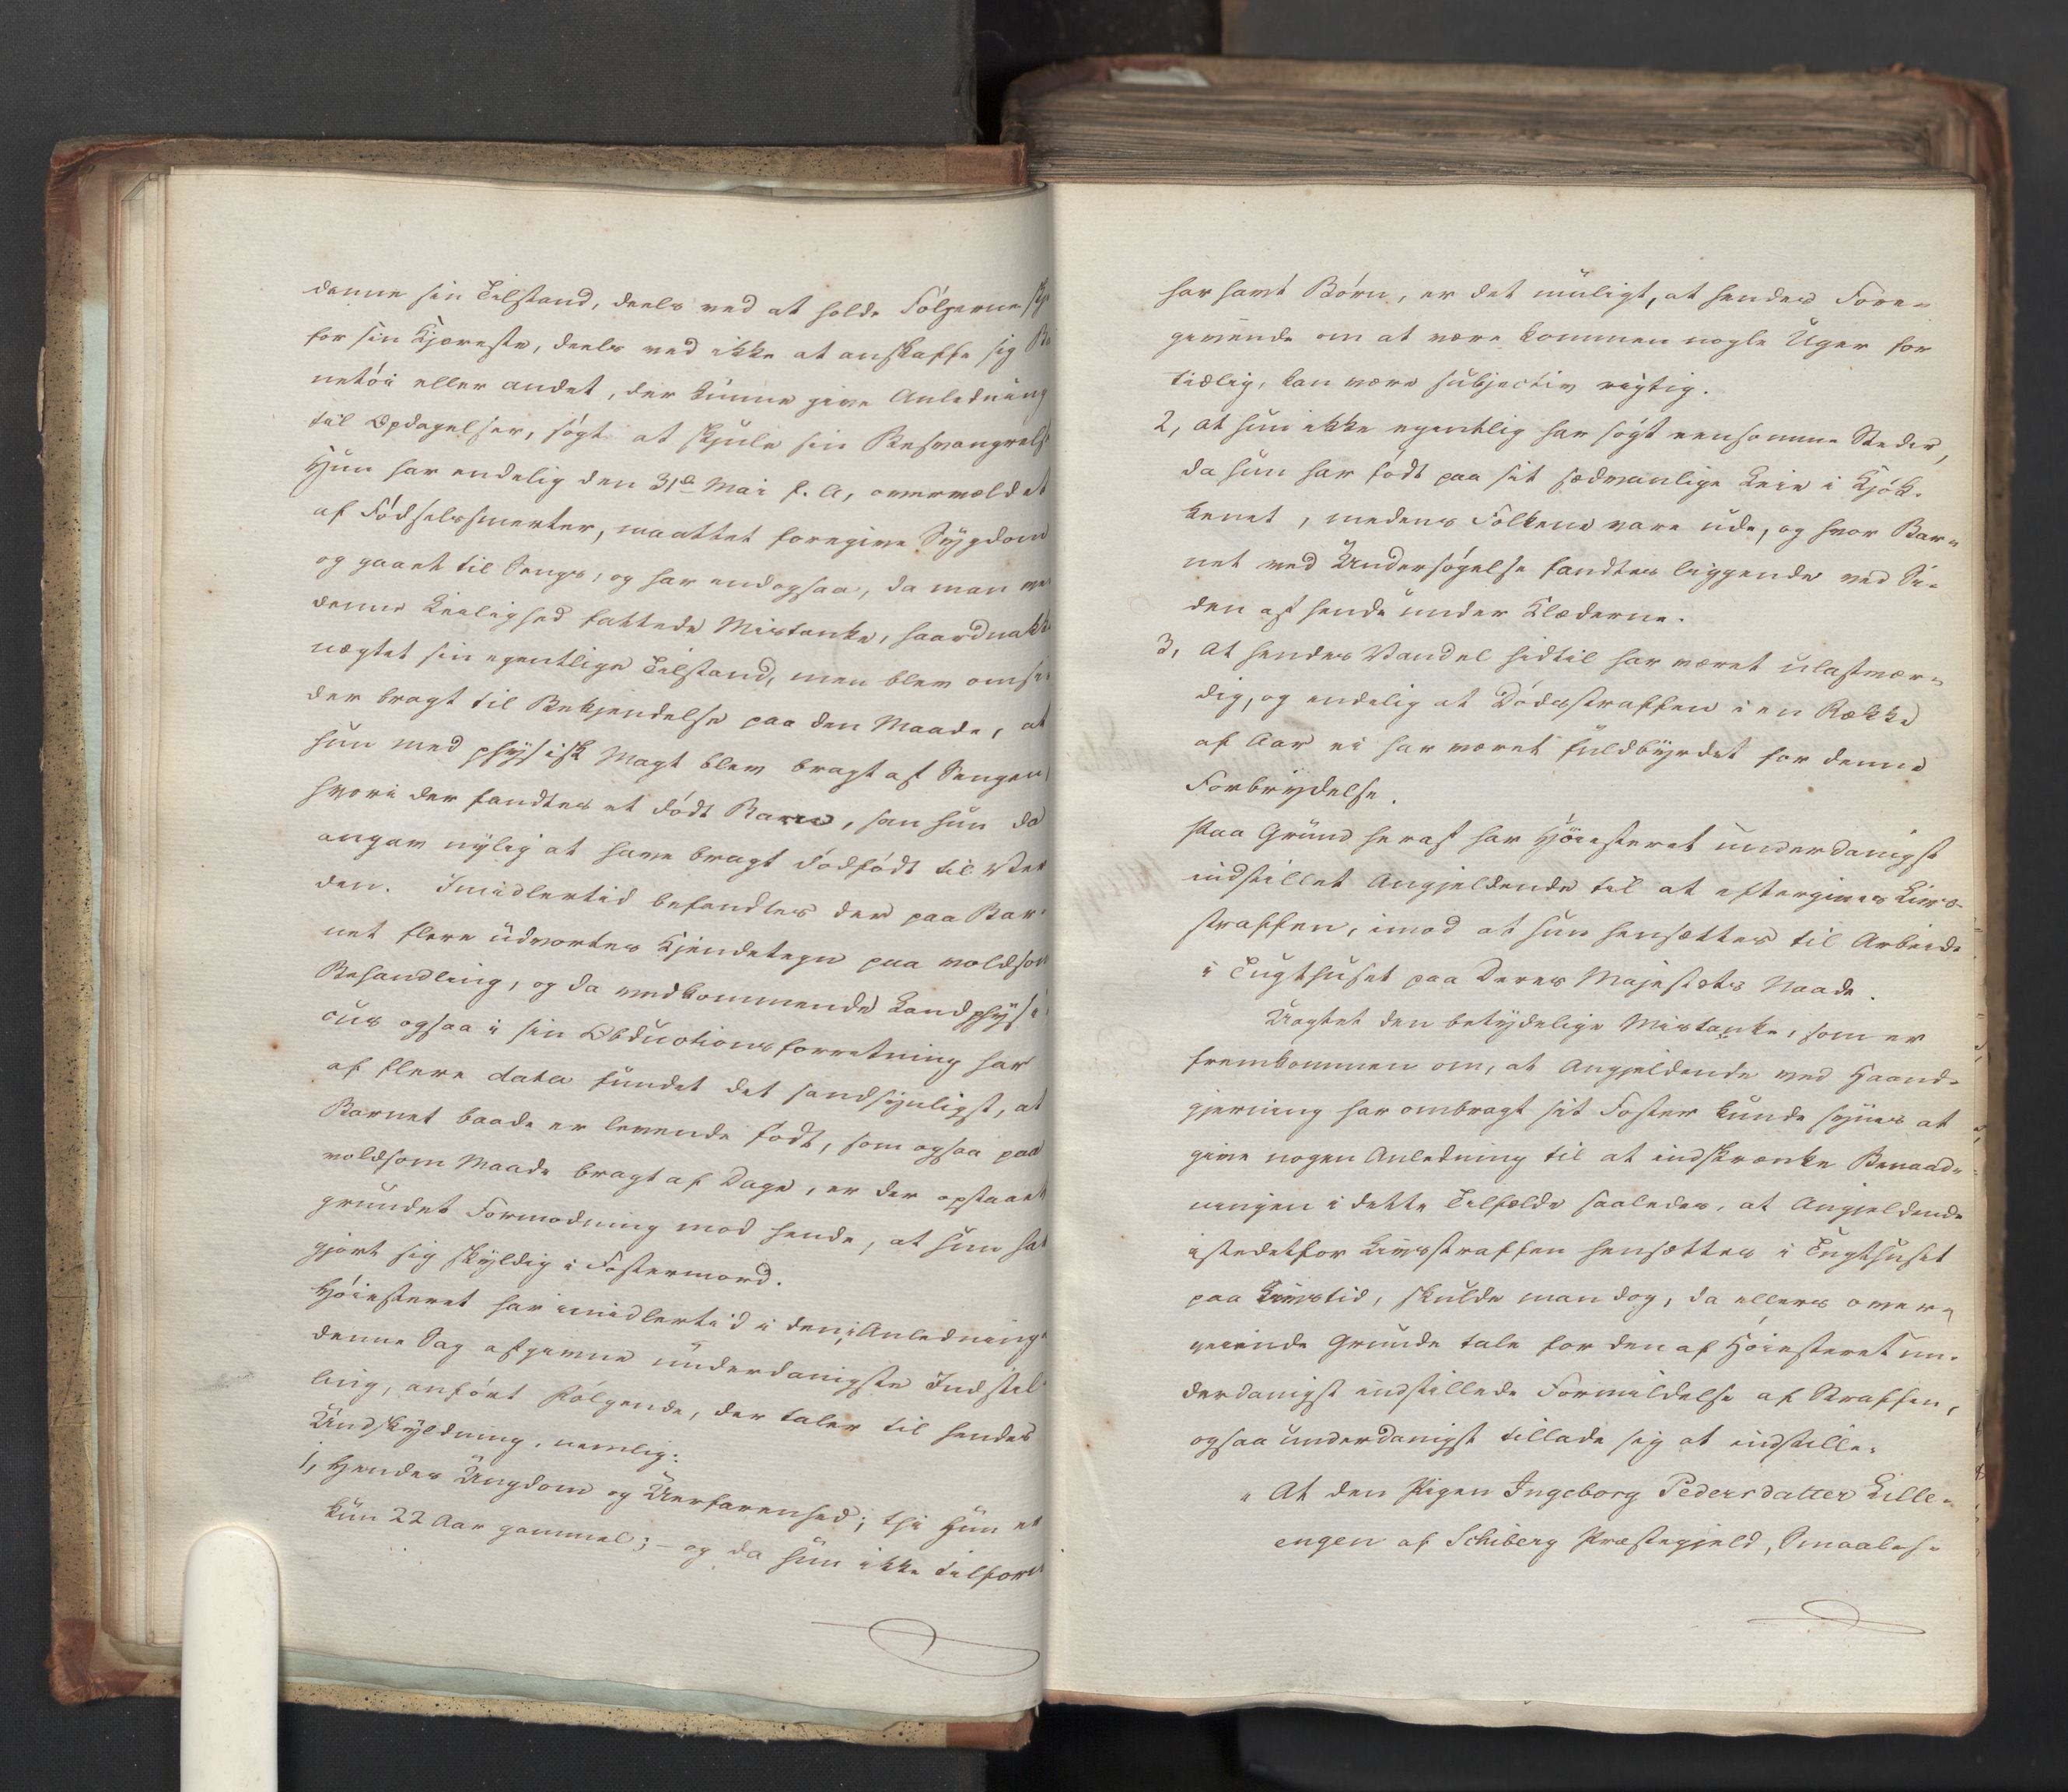 denne sin Tilstand, deels ved at holde Følgerne
for sin Kjæreste, deels ved ikke at anskaffe sig
netøi eller andet, der kunne give Anledning
til Opdagelser, søgt at skjule sin Besvangrelse
Hun har endelig den 31te Mai f. A, overvældet
af Fødselssmerter, maattet foregive Sygdom
og gaaet til Sengs, og har endogsaa, da man ved
denne Leilighed fattede Mistanke, haardnakke
nægtet sin egentlige Tilstand, men blev omsi
der bragt til Bekjendelse paa den Maade, at
hun med physisk Magt blev bragt af Sengen,
hvori der fandtes et dødt Barn, som hun da
angav nylig at have bragt dødfødt til Ver
den. Imidlertid befandtes der paa Bar
net flere udvortes Kjendetegn paa voldsom
Behandling, og da vedkommende Landphysi
cus ogsaa i sin Obductionsforretning har
af flere data fundet det sandsynligst, at
Barnet baade er levende født, som ogsaa paa
voldsom Maade bragt af Dage, er der opstaaet
grundet Formodning mod hende, at hun har
gjort sig skyldig i Fostermord.
Høiesteret har imidlertid i den i Anledning
denne Sag afgivne underdanigste Indstil
ling, anført følgende, der taler til hendes
Undskyldning, nemlig:
1, Hendes Ungdom og Uerfarenhed; thi hun er
kun 22 Aar gammel; – og da hun ikke tilforn
har havt Børn, er det muligt, at hendes Fore-
givende om at være kommen nogle Uger for
tidlig, kan være subjectiv rigtig.
2, at hun ikke egentlig har søgt eensomme Steder,
da hun har født paa sit sædvanlige Leie i Kjøk-
kenet, medens Folkene vare ude, og hvor Bar-
net ved Undersøgelse fandtes liggende ved Si-
den af hende under Klæderne.
3, At hendes Vandel hidtil har været ulastvær-
dig, og endelig at Dødsstraffen i en Række
af Aar ei har været fuldbyrdet for denne
Forbrydelse.
Paa Grund heraf har Høiesteret underdanigst
indstillet Angjeldende til at eftergives Livs-
straffen, imod at hun hensættes til Arbeide
i Tugthuset paa Deres Majestæts Naade.
Uagtet den betydelige Mistanke, som er
fremkommen om, at Angjeldende ved Haand-
gjerning har ombragt sit Foster kunde synes at
give nogen Anledning til at indskrænke Benaad-
ningen i dette Tilfælde saaledes, at Angjeldende
istedetfor Livsstraffen hensættes i Tugthuset
paa Livstid, skulde man dog, da ellers over-
veiende Grunde tale for den af Høiesteret un-
derdanigst indstillede Formildelse af Straffen,
ogsaa underdanigst tillade sig at indstille:
"At den Pigen Ingeborg Pedersdatter Lille-
engen af Schiberg Præstegjeld, Smaaleh-